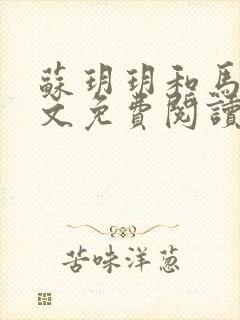 蘇玥玥和馬
文免費閱讀
苦味洋蔥